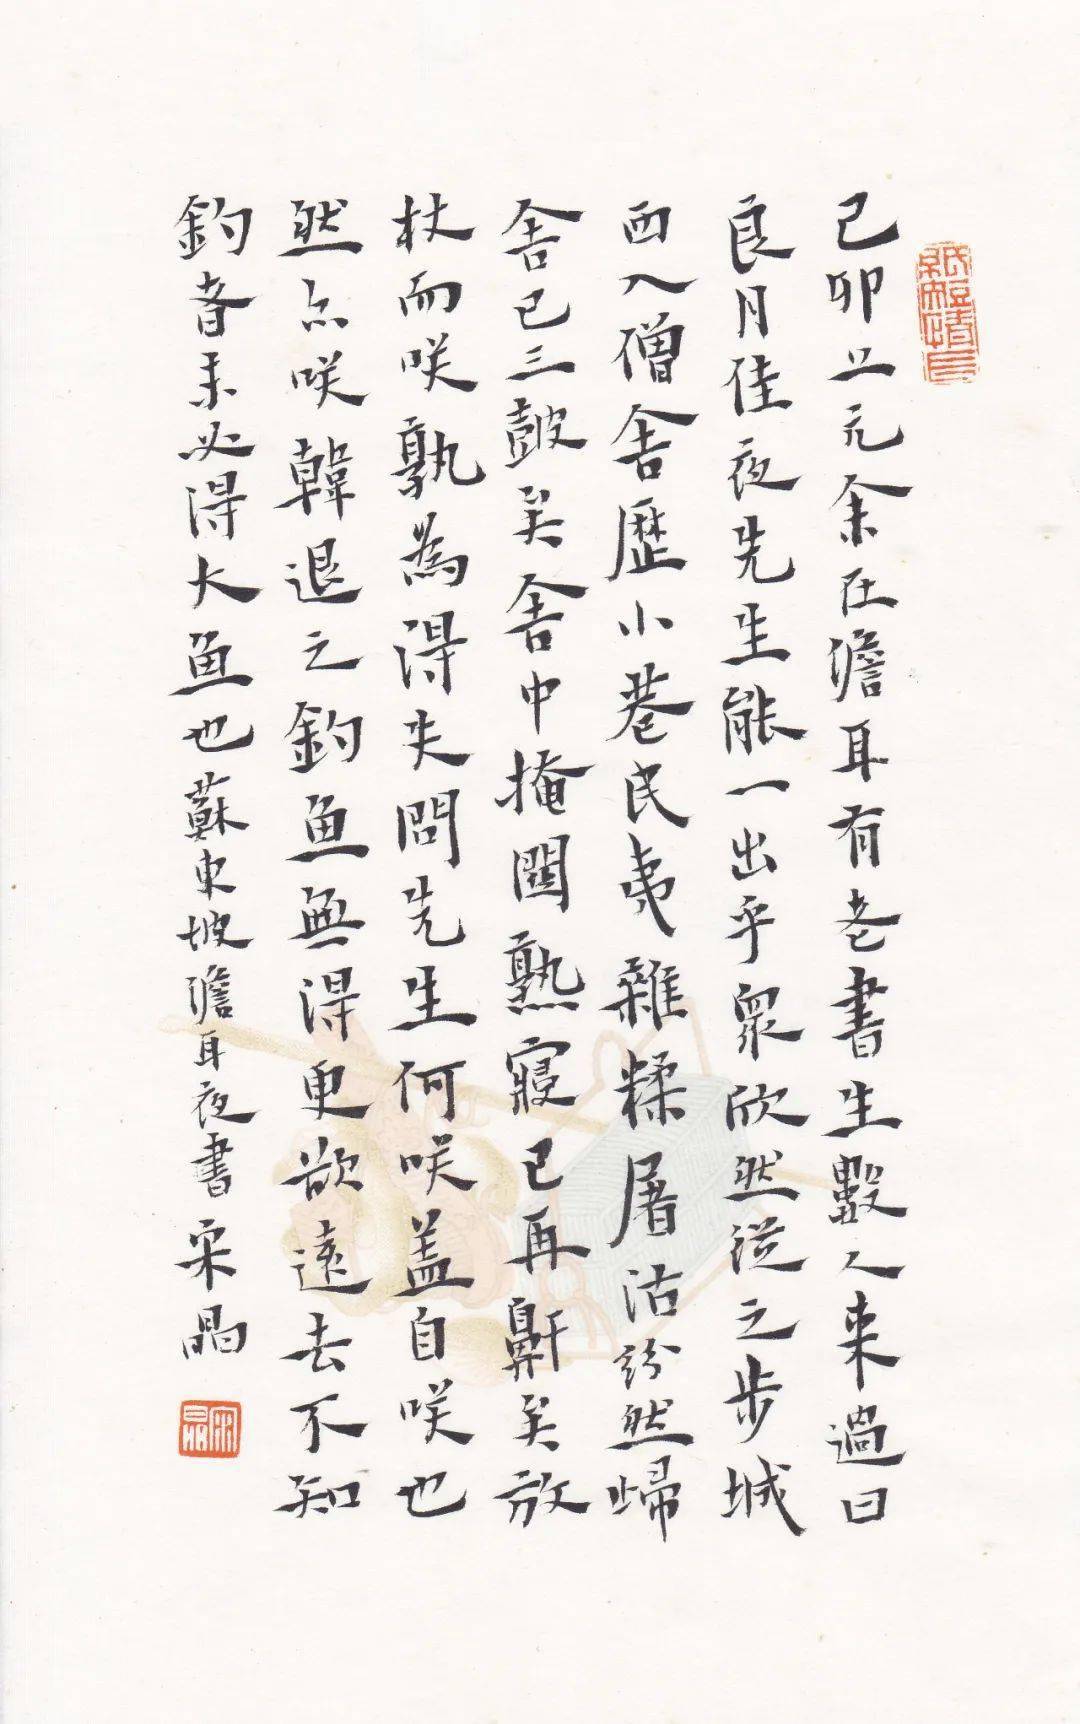 己卯上元余在澹耳有老書生數人来過曰
良月佳夜先生能一出乎眾欣然從之步城
西入僧舍歷小巷民夷雜糅屠沽紛然歸
舍已三鼓矣舍中掩關熟寢已再鼾矣放
杖而咲孰為得失問先生何咲盖自咲也
然亦咲韓退之釣魚無得更欲遠去不知
釣者未必得大魚也蘇東坡澹耳夜書宋晶
宋晶